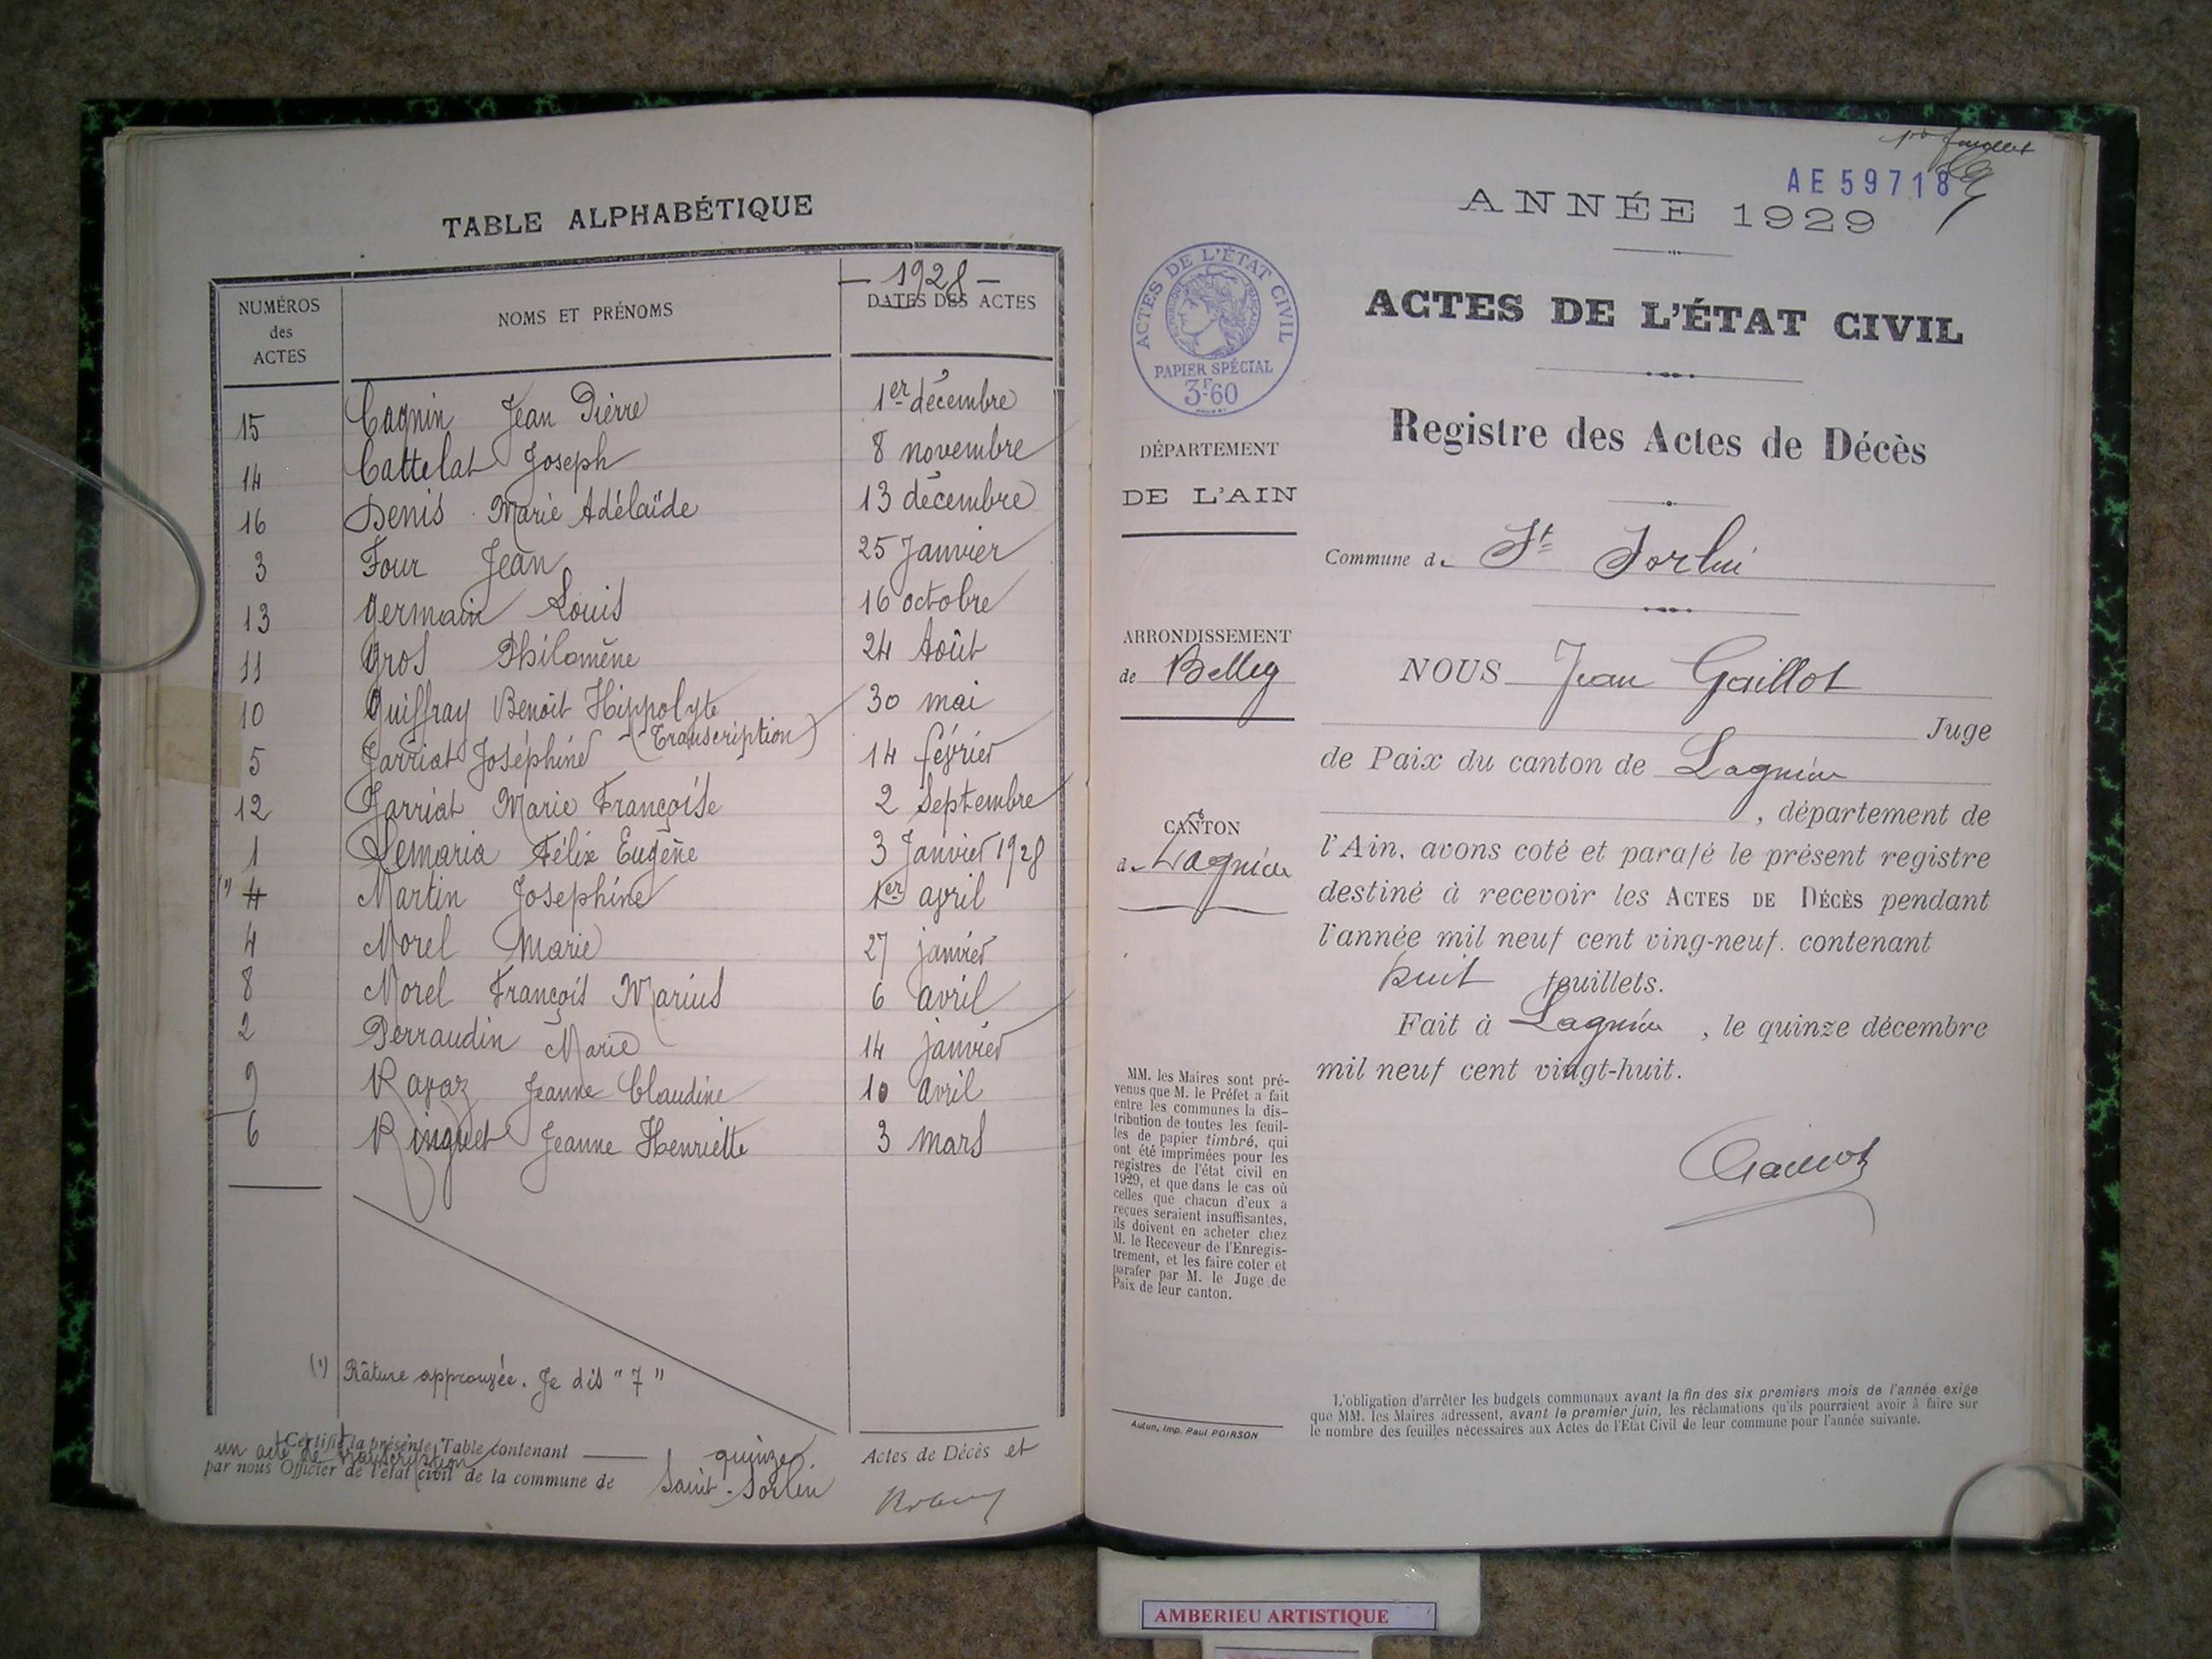 TABLE ALPHABÉTIQUE
NUMÉROS des ACTES
NOMS ET PRÉNOMS
— 1928 —
DATES DES ACTES
15 Cagnin Jean Pierre 1er décembre
14 Cattelat Joseph 8 novembre
16 Denis Marie Adélaïde 13 décembre
3 Four Jean 25 Janvier
13 Germain Louis 16 octobre
11 Gros Philomène 24 Août
10 Guiffray Benoit Hippolyte 30 mai
(Transcription)
5 Jarriat Joséphine 14 février
12 Jarriat Marie Françoise 2 Septembre
1 Lemaria Félix Eugène 3 Janvier 1928
(1) 4 Martin Joséphine 1er avril
4 Morel Marie 27 janvier
8 Morel François Marius 6 avril
2 Perraudin Marie 14 janvier
9 Ravaz Jeanne Claudine 10 avril
6 Ringuet Jeanne Henriette 3 mars
(1) Râture approuvée. Je dis "7"
Certifié la présente Table contenant quinze Actes de Décès et
un acte de transcription
par nous Officier de l'état civil de la commune de Saint-Sorlin
1er feuillet
AE 59718
ANNÉE 1929
ACTES DE L'ÉTAT CIVIL
PAPIER SPÉCIAL
3F60
ACTES DE L'ÉTAT CIVIL
Registre des Actes de Décès
DÉPARTEMENT
DE L'AIN
Commune de St Sorlin
ARRONDISSEMENT
de Belley
CANTON
de Lagnieu
NOUS Jean Gaillot
Juge
de Paix du canton de Lagnieu
, département de
l'Ain, avons coté et parafé le présent registre
destiné à recevoir les ACTES DE DÉCÈS pendant
l'année mil neuf cent ving-neuf. contenant
huit feuillets.
Fait à Lagnieu , le quinze décembre
mil neuf cent vingt-huit.
Gaillot
MM. les Maires sont pré-
venus que M. le Préfet a fait
entre les communes la dis-
tribution de toutes les feuil-
les de papier timbré, qui
ont été imprimées pour les
registres de l'état civil en
1929, et que dans le cas où
celles que chacun d'eux a
reçues seraient insuffisantes,
ils doivent en acheter chez
M. le Receveur de l'Enregis-
trement, et les faire coter et
parafer par M. le Juge de
Paix de leur canton.
Autun, Imp. Paul POIRSON
L'obligation d'arrêter les budgets communaux avant la fin des six premiers mois de l'année exige
que MM. les Maires adressent, avant le premier juin, les réclamations qu'ils pourraient avoir à faire sur
le nombre des feuilles nécessaires aux Actes de l'Etat Civil de leur commune pour l'année suivante.
AMBERIEU ARTISTIQUE